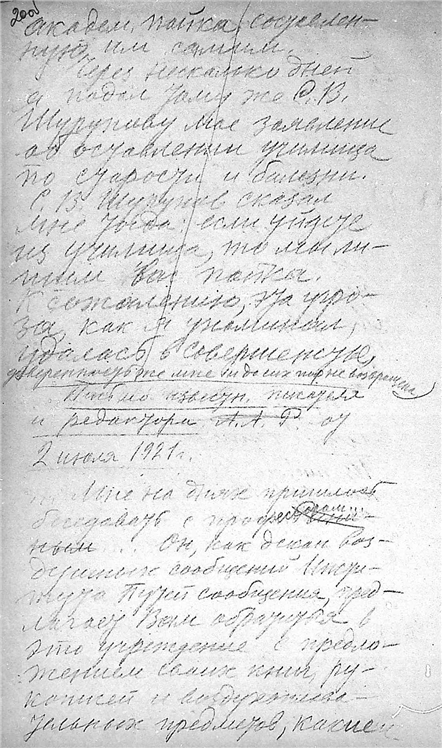 200
академ. пайка, составлен-
ную им самим.
Через несколько дней
я подал тому же С. В.
Шурупову мое заявление
об оставлении училища
по старости и болезни.
С. В. Шурупов сказал
мне тогда: если уйдете
из училища, то мы ли-
шим Вас пайка.
К сожалению, эта угро-
за, как я упоминал,
удалась в совершенстве,
доверенность же мне и до сих пор не возвращена
Письмо известн. писателя
и редактора А. А. Р. от
2 июля 1921 г.
Мне на днях пришлось
беседовать с проф.
ным ... Он, как декан воз-
душных сообщений Инсти-
тута Путей сообщения, пред-
лагает Вам обратиться в
это учреждение с предло-
жением своих книг, ру-
кописей и воздухоплава-
тельных предметов, какие